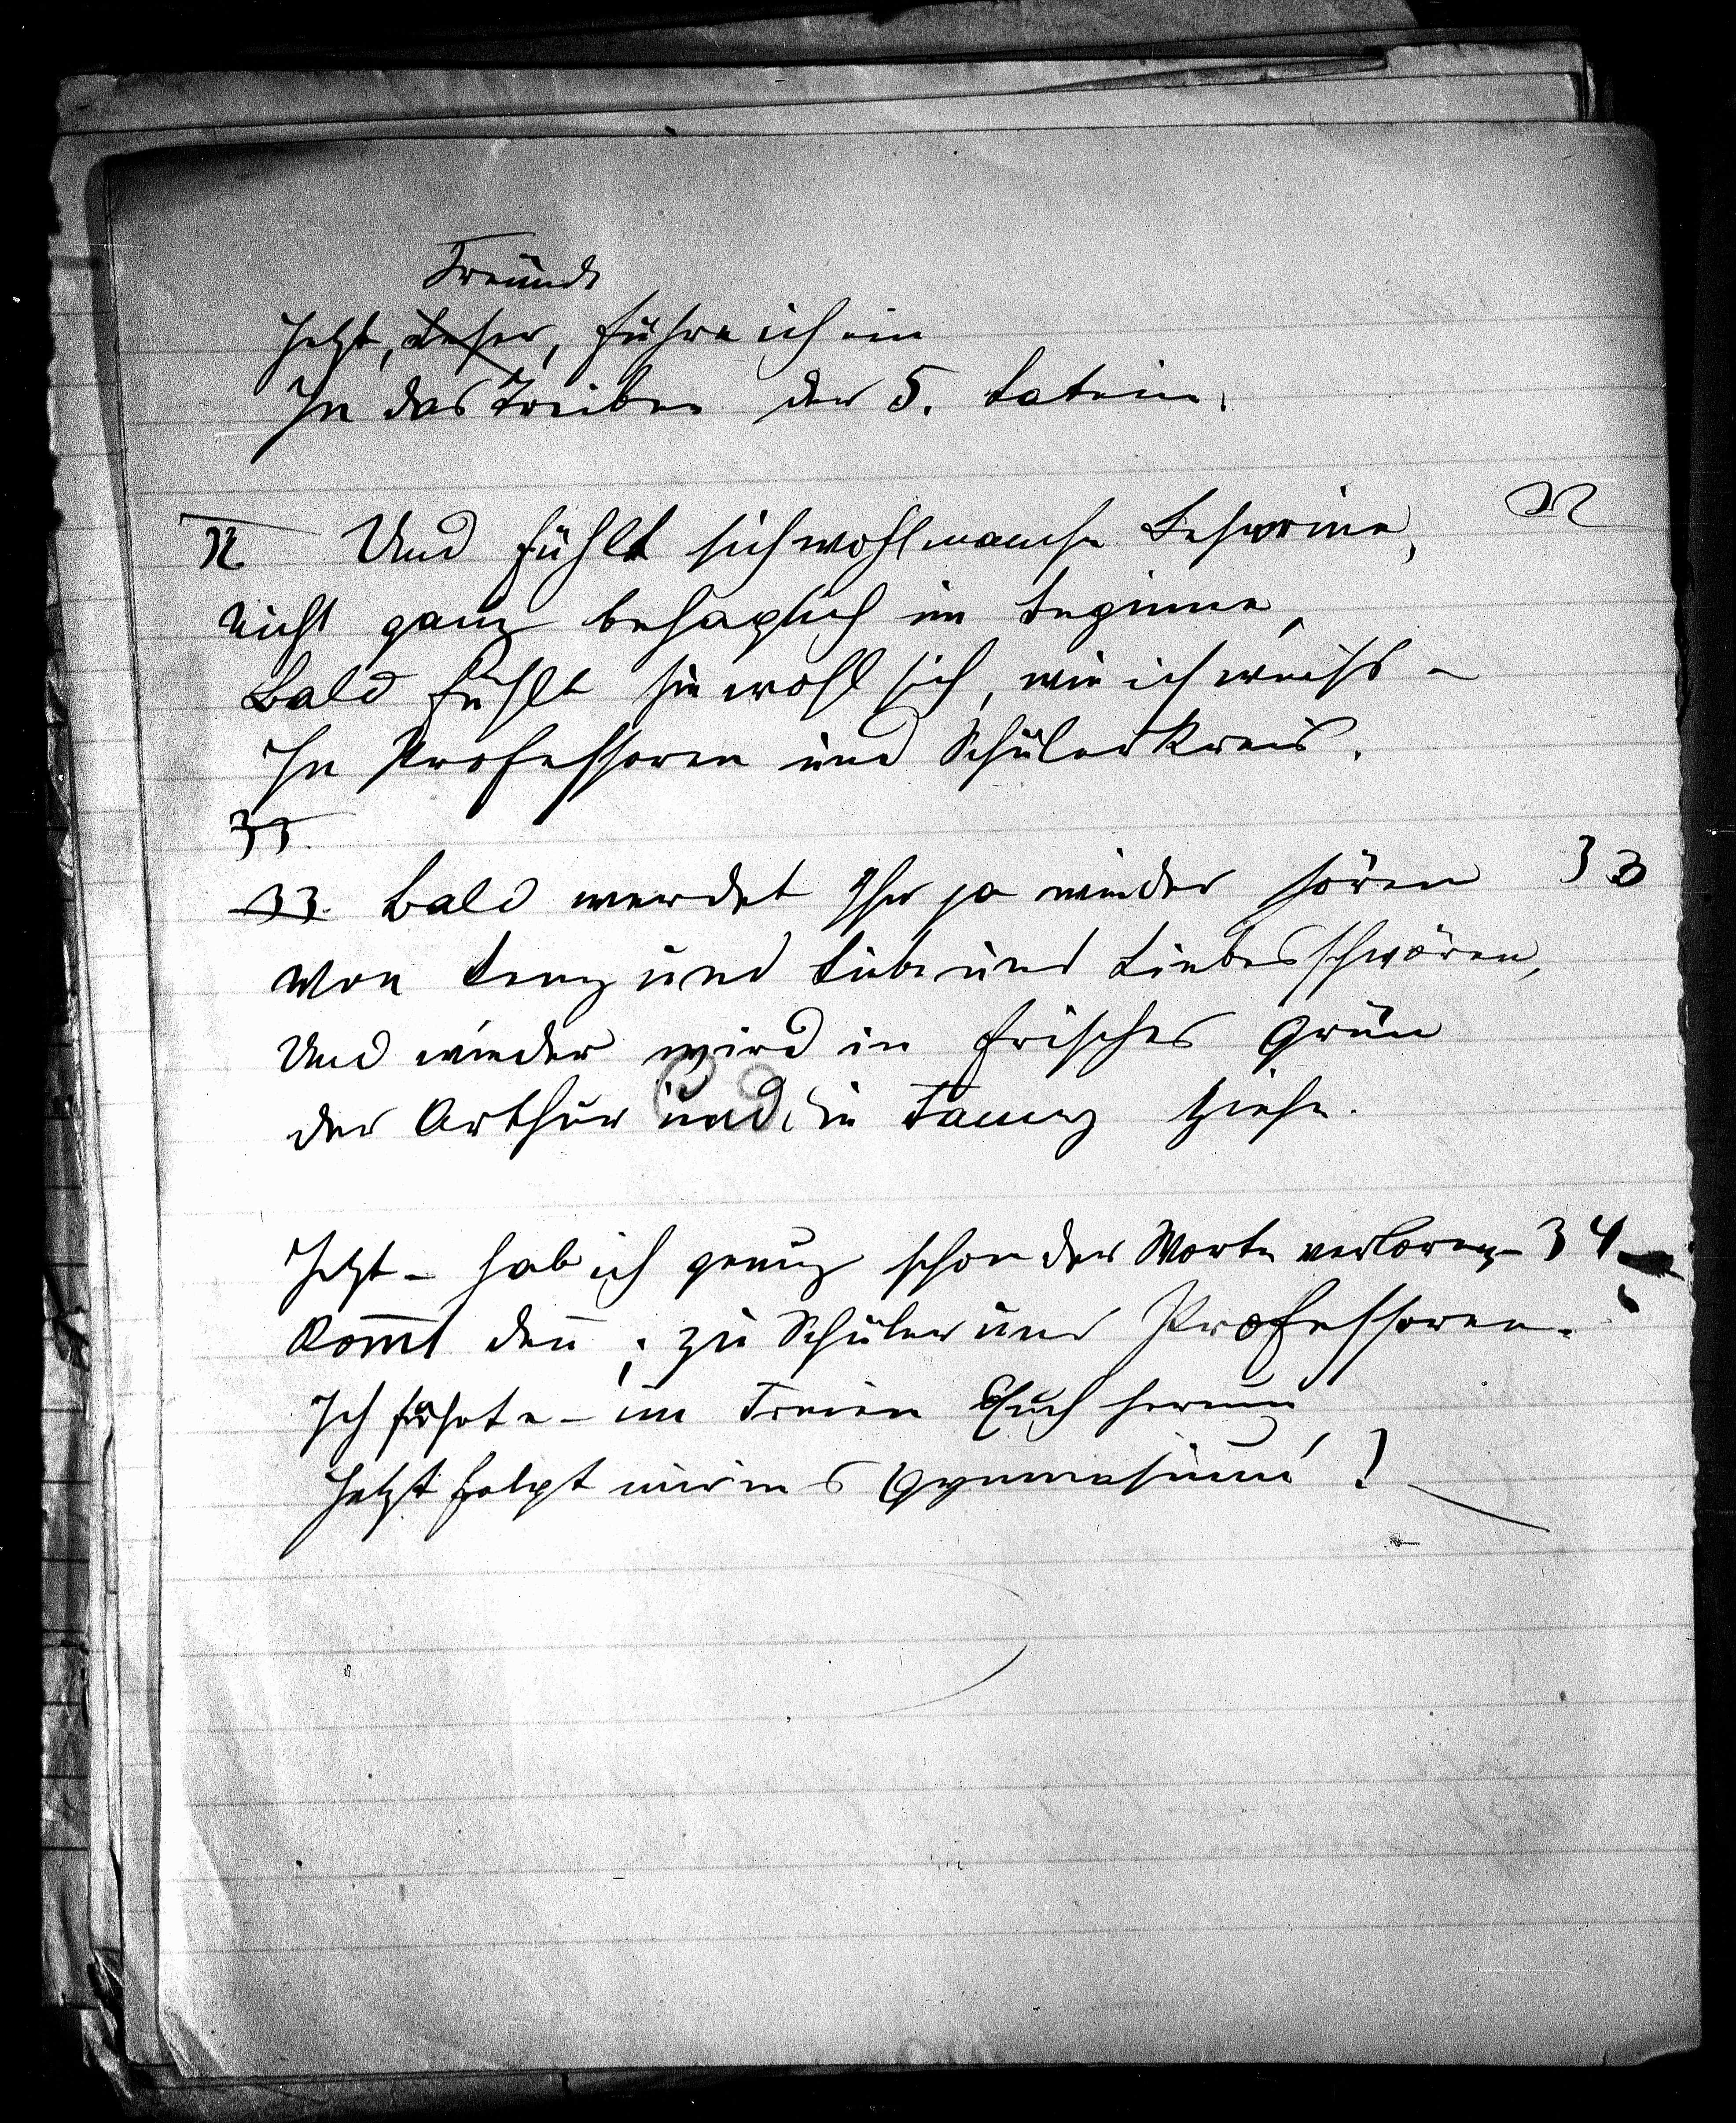 Freunde
Jetzt, Leser, führe ich ein
In das Treiben der 5. Latein.
32
32. Und fühlt sich wohl manche Leserine,
nicht ganz behaglich im Beginne,
Bald fühlt sie wohl sich, wie ich weiß –
In Professoren und Schülerkreis.
33.
33. Bald werdet Ihr ja wieder hören 33
Von Lenz und Liebe und Liebesschwören,
Und wieder wird in frisches Grün
der Arthur und die Fanny ziehn.
Jetzt – hab ich genug schon der Worte verloren – 34
Kom̅t den̅; zu Schüler und Professoren.
Ich führte – im Freien Euch herum
Jetzt folgt mir ins Gymnasium!